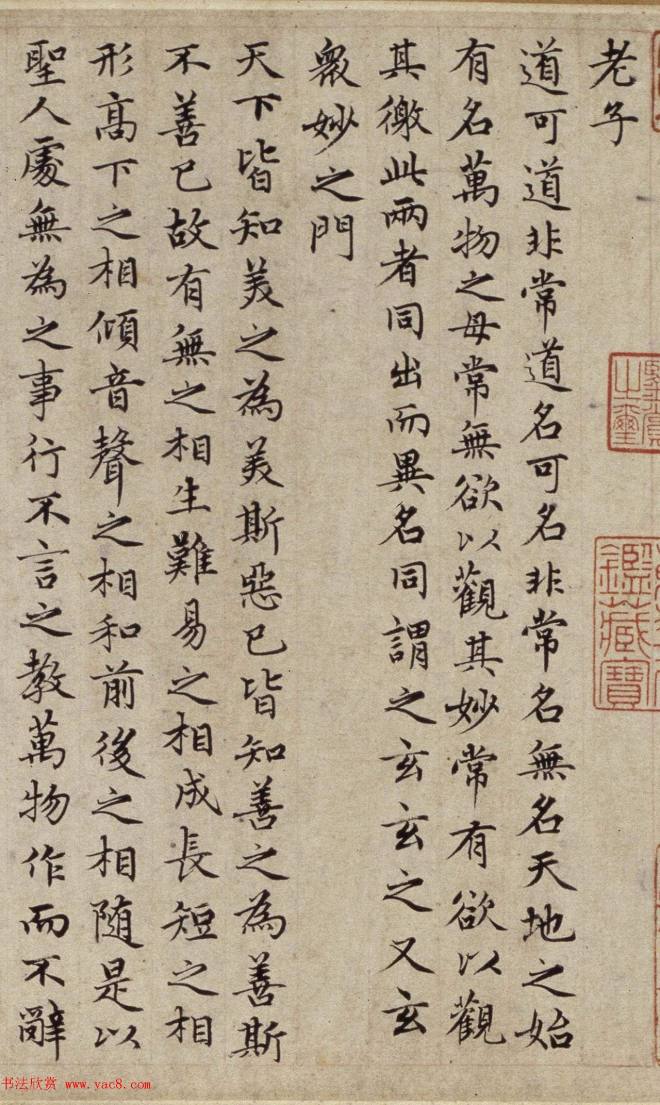 老子
道可道非常道名可名非常名無名天地之始
有名萬物之母常無欲以觀其妙常有欲以觀
其徼此兩者同出而異名同謂之玄玄之又玄
衆妙之門
天下皆知美之為美斯惡已皆知善之為善斯
不善已故有無之相生難易之相成長短之相
形高下之相傾音聲之相和前後之相随是以
聖人處無為之事行不言之教萬物作而不辭
鑑藏寶
书法欣赏 www.yac8.com